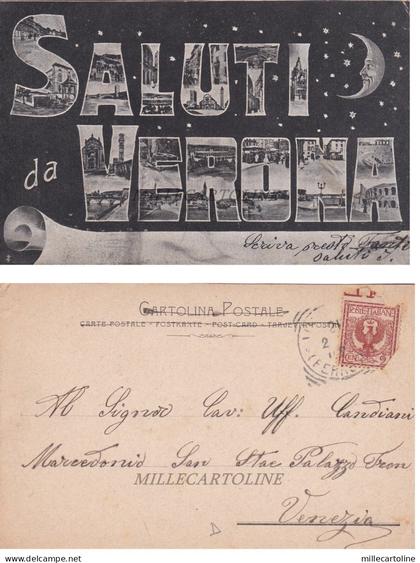 SALUTI
da VERONA
Scriva presto Tanti
saluti
CARTOLINA POSTALE
CARTE POSTALE - POSTKARTE - POST-CARD - TARJETA POSTAL
POSTE ITALIANE
Al Signor Cav: Uff. Candiani
Marcedonio San Stae Palazzo Tron
MILLECARTOLINE
Venezia
Delcampe.net
millecartoline